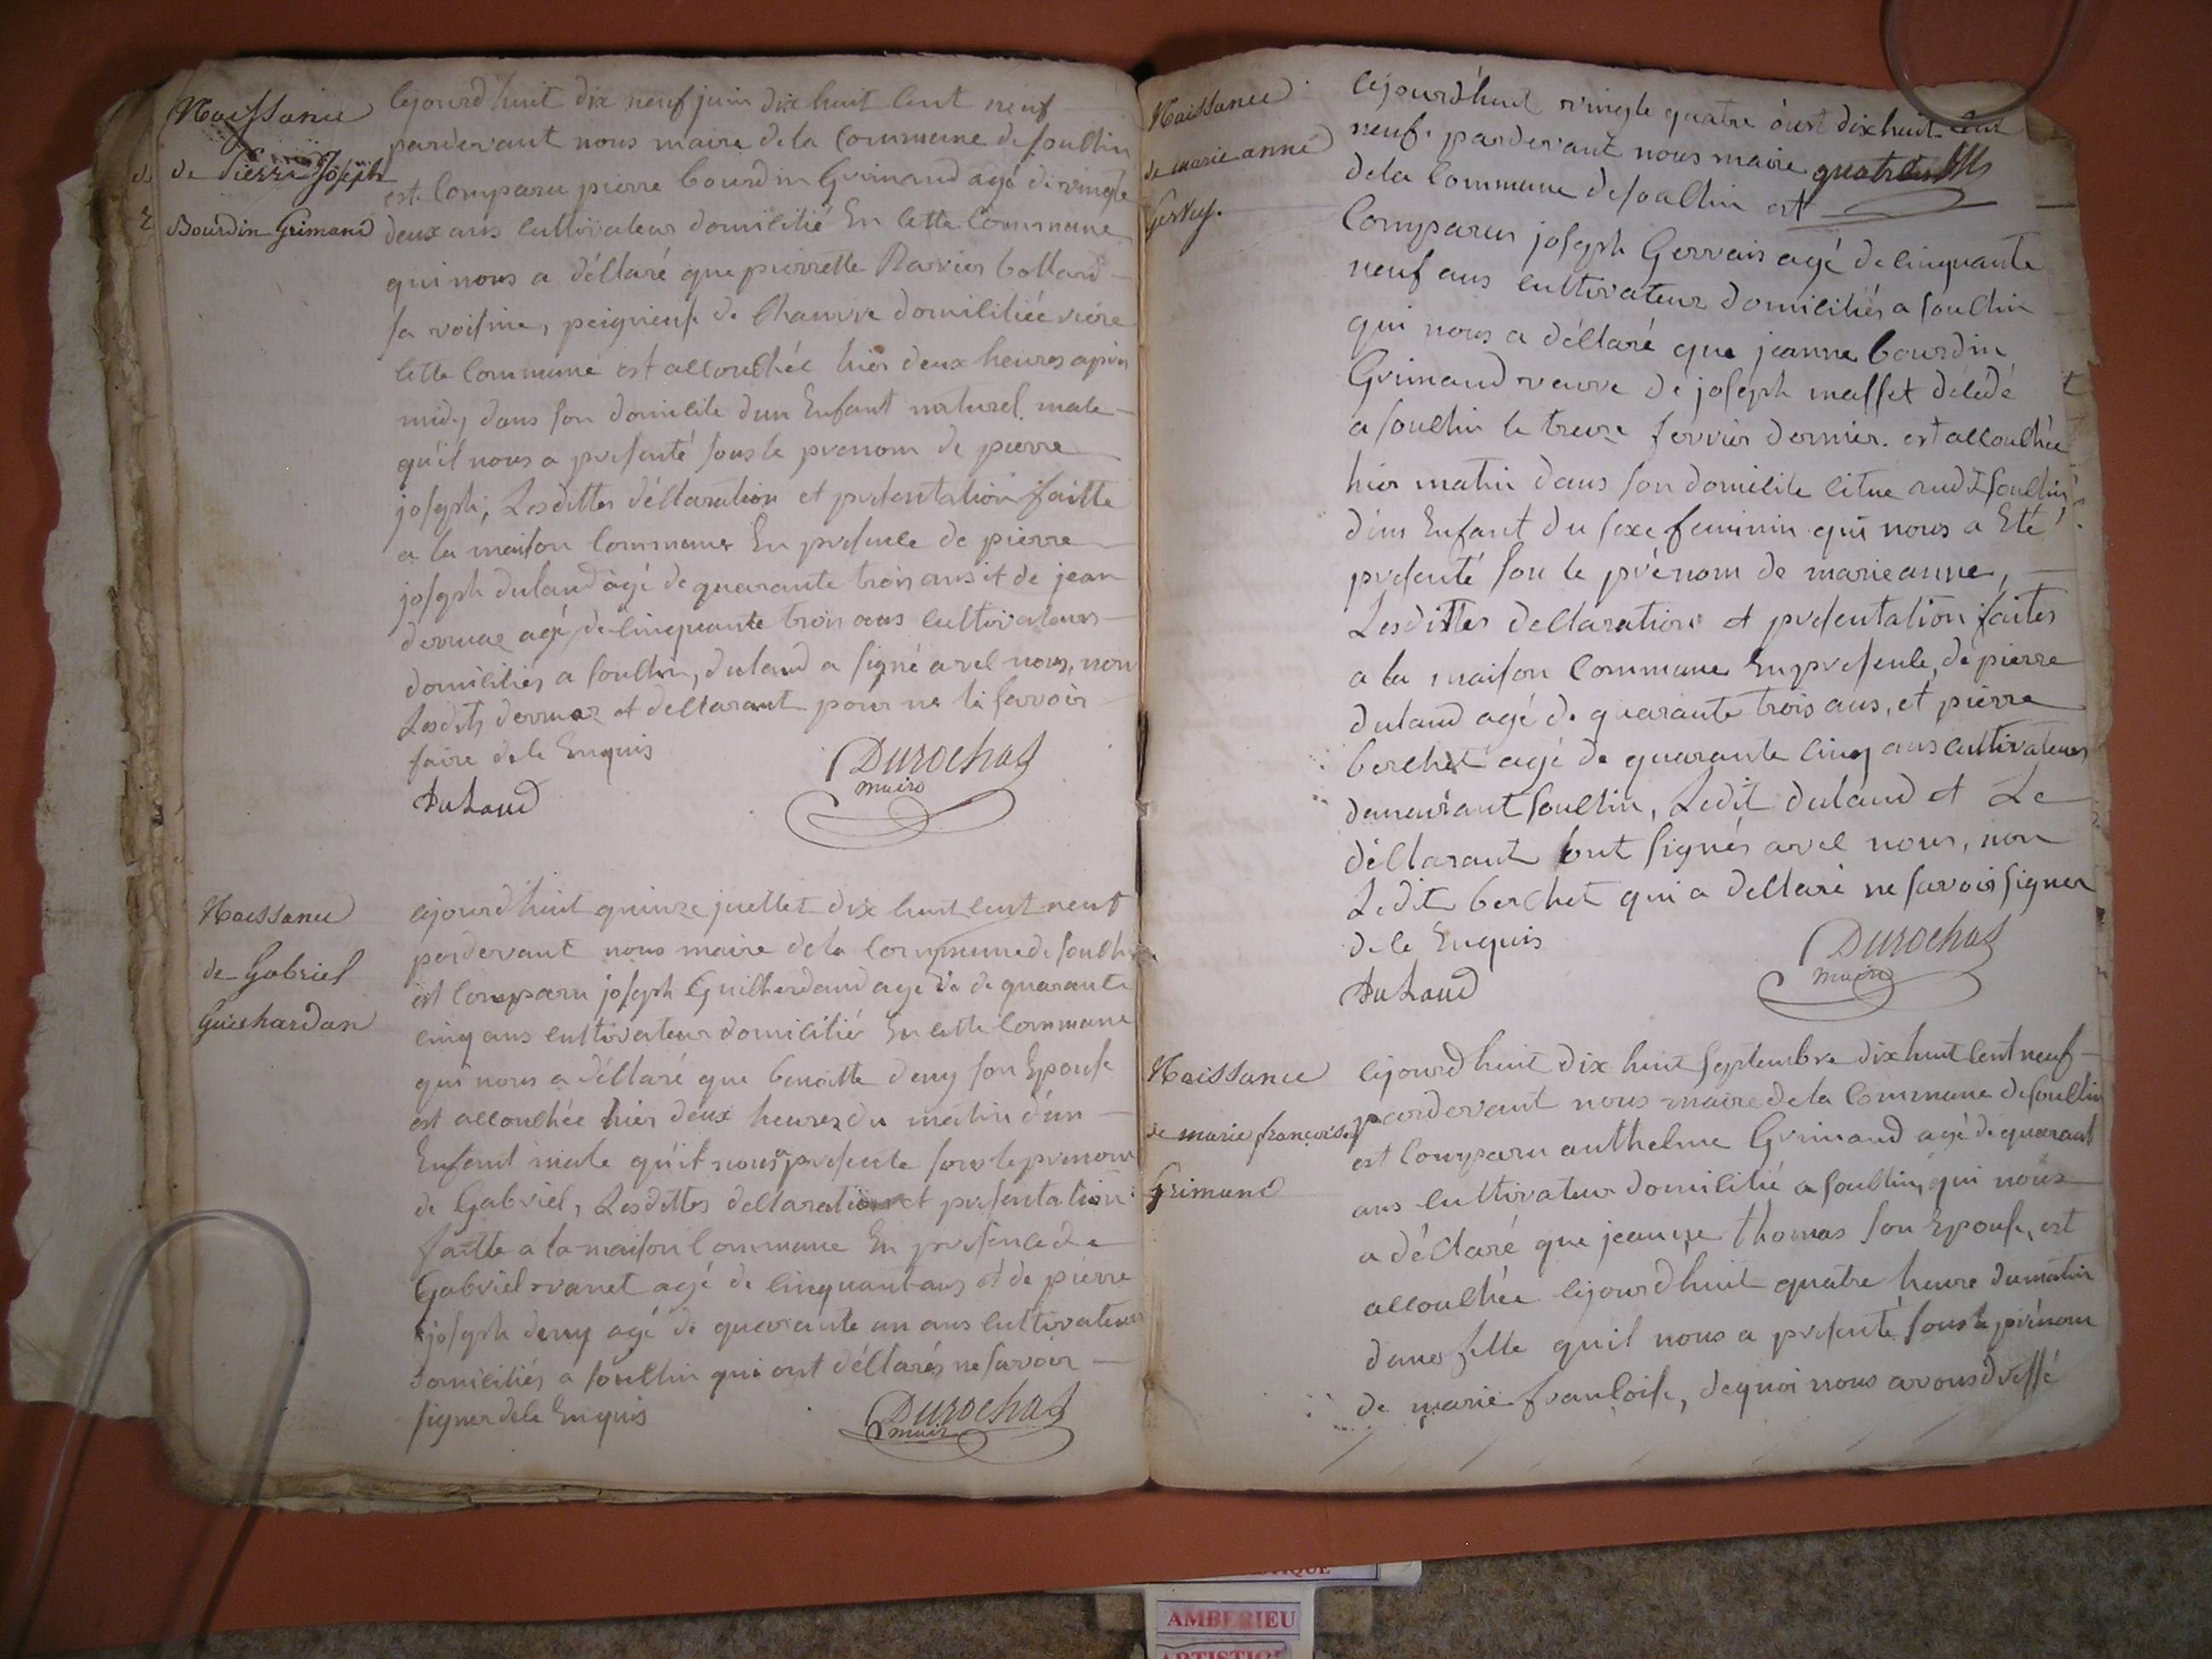 Naissance
de Pierre Joseph
Bourdin Grimand
Cejourd'huit dix neuf juin dix huit cent neuf
pardevant nous maire de la Commune de souclin
est Comparu pierre bourdin Grimand agé de vingte
deux ans cultivateur domicilié En cette Commune
qui nous a déclaré que pierrette Ravier bottard
sa voisine, peigneuse de Chanvre domiciliée
cette Commune est accouchée hier deux heures après
midy dans son domicile d'un Enfant naturel male
qu'il nous a presenté sous le prenom de pierre
joseph, Lesdittes déclaration et presentation faitte
a la maison Commune En presence de pierre
joseph duland âgé de quarante trois ans et de jean
derruaz agé de cinquante trois ans cultivateurs
domiciliés a souclin, duland a signé avec nous, non
Lesdits derruaz et declarant pour ne le savoir
faire de ce Enquis
Duland
Durochat
maire
Naissance
de Gabriel
Guichardan
Cejourd'huit quinze juillet dix huit cent neuf
pardevant nous maire dela Commune de souclin
est Comparu joseph Guilherdand agé de de quarante
cinq ans cultivateur domicilié En cette Commune
qui nous a déclaré que benoitte deny son Epouse
est accouchée hier deux heures du matin d'un
Enfant male qu'il nous a presente sous le prenom
de Gabriel, Lesdittes declaration et presentation
faitte a la maison Commune En presence de
Gabriel vanet agé de cinquant ans et de pierre
joseph deny agé de quarante un ans cultivateurs
domiciliés a souclin qui ont déclarés ne savoir
signer de ce Enquis
Durochat
maire
Naissance
de marie anne
Gervay.
Cejourd'huit vingte quatre oust dix huit cent
neuf. pardevant nous maire
dela Commune de souclin est
Comparus joseph Gervais agé de cinquante
neuf ans cultivateur domiciliés a souclin
qui nous a déclaré que jeanne bourdin
Grimand veuve de joseph masset décédé
a souclin le treize fevrier dernier. est accouchée
hier matin dans son domicile citue audt souclin
d'un Enfant du sexe feminin qui nous a Eté
presenté sou le prénom de marieanne,
Lesdittes declaration et presentation faites
a la maison Commune En presence, de pierre
duland agé de quarante trois ans, et pierre
berchet agé de quarante cinq ans cultivateurs
demeurant souclin, Ledit duland et Le
déclarant ont signés avec nous, non
Ledit berchet qui a declaré ne savoir signer
de ce Enquis
Duland
Durochat
maire
Naissance
de marie françoise
Grimand
Cejourd'huit dix huit septembre dix huit cent neuf
pardevant nous maire dela Commune de souclin
est Comparu anthelme Grimand agé de quarant
ans cultivateur domicilié a souclin, qui nous
a déclaré que jeanne thomas son Epouse, est
accouchée cejourd'huit quatre heure du matin
dune fille qu'il nous a presenté sous le prénom
de marie francoise, dequoi nous avons dressé
AMBERIEU
ARTISTIQUE